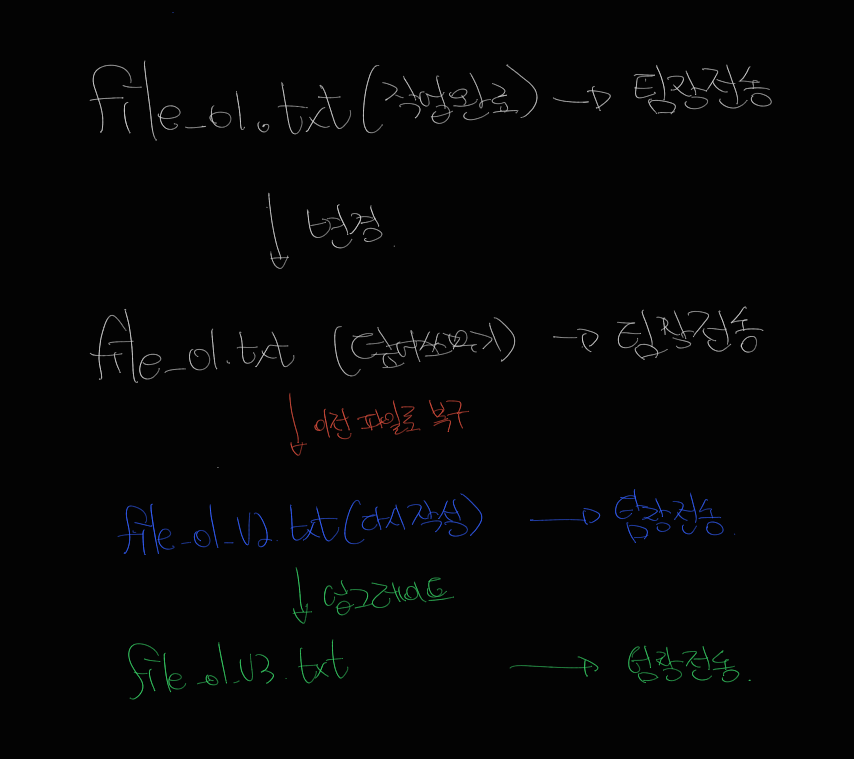 file_01.txt (작업완료) → 팀장전송
↓ 변경.
file_01.txt (덮어씌우기) → 팀장전송
↓ 이전 파일로 복구
file_01_V2.txt (다시작성) → 팀장전송.
↓ 업그레이드
file_01_V3.txt → 팀장전송.